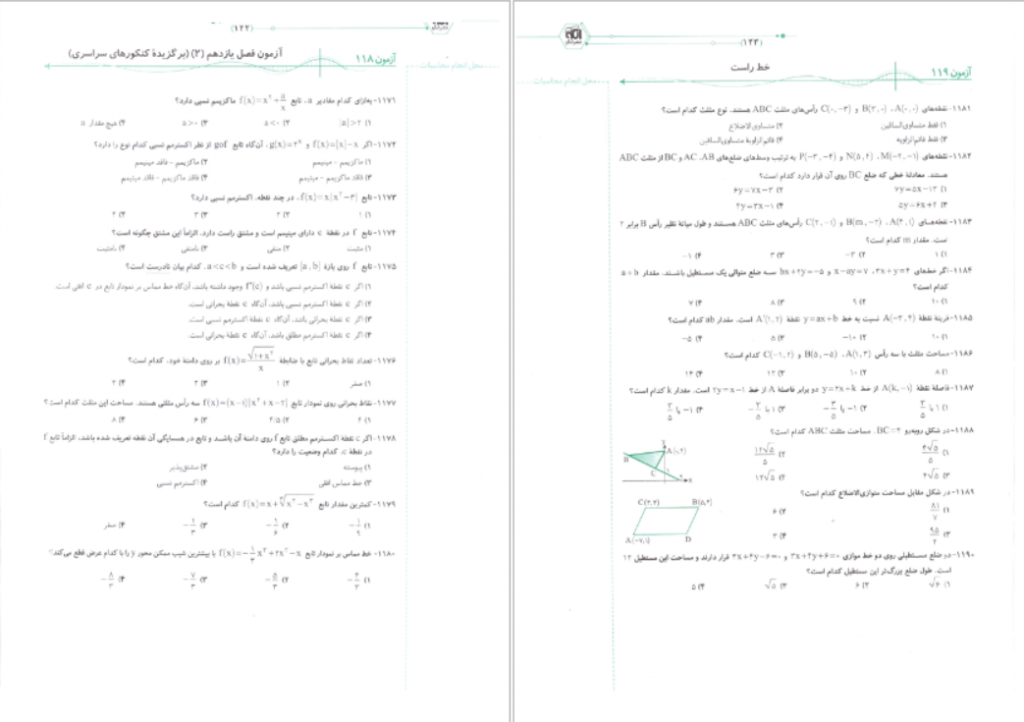 (۱۲۲)
آزمون ۱۱۸
آزمون فصل یازدهم (۲) (برگزیدهٔ کنکورهای سراسری)
محل انجام محاسبات
۱۱۷۱- به‌ازای کدام مقادیر a، تابع ماکزیمم نسبی دارد؟
۱) |a|>۲ ۲) a<۰ ۳) a>۰ ۴) هیچ مقدار a
۱۱۷۲- اگر f(x)=[x]-x و آن‌گاه تابع gof از نظر اکسترمم نسبی کدام نوع را دارد؟
۱) ماکزیمم - مینیمم ۲) ماکزیمم - فاقد مینیمم
۳) فاقد ماکزیمم - مینیمم ۴) فاقد ماکزیمم - فاقد مینیمم
۱۱۷۳- تابع f(x)=x|x²-۳|، در چند نقطه، اکسترمم نسبی دارد؟
۱) ۱ ۲) ۲ ۳) ۳ ۴) ۴
۱۱۷۴- تابع f در نقطهٔ c دارای مینیمم است و مشتق راست دارد. الزاماً این مشتق چگونه است؟
۱) مثبت ۲) منفی ۳) نامنفی ۴) نامثبت
۱۱۷۵- تابع f روی بازهٔ [a,b] تعریف شده است و a<c<b، کدام بیان نادرست است؟
۱) اگر c نقطهٔ اکسترمم نسبی باشد و f′(c) وجود داشته باشد، آن‌گاه خط مماس بر نمودار تابع در c افقی است.
۲) اگر c نقطهٔ اکسترمم نسبی باشد، آن‌گاه c نقطهٔ بحرانی است.
۳) اگر c نقطهٔ بحرانی باشد، آن‌گاه c نقطهٔ اکسترمم نسبی است.
۴) اگر c نقطهٔ اکسترمم مطلق باشد، آن‌گاه c نقطهٔ بحرانی است.
۱۱۷۶- تعداد نقاط بحرانی تابع با ضابطهٔ f(x)=√(۱+x²)/x بر روی دامنهٔ خود، کدام است؟
۱) صفر ۲) ۱ ۳) ۲ ۴) ۳
۱۱۷۷- نقاط بحرانی روی نمودار تابع f(x)=(x-۱)|x²+x-۲| سه رأس مثلثی هستند. مساحت این مثلث کدام است؟
۱۱۷۸- اگر c نقطهٔ اکسترمم مطلق تابع f روی دامنه آن باشد و تابع در همسایگی آن نقطه تعریف شده باشد، الزاماً تابع f
در نقطهٔ c، کدام وضعیت را دارد؟
۱) پیوسته ۲) مشتق‌پذیر
۳) خط مماس افقی ۴) اکسترمم نسبی
۱۱۷۹- کمترین مقدار تابع کدام است؟
۴) صفر
۱۱۸۰- خط مماس بر نمودار تابع با بیشترین شیب ممکن محور y را با کدام عرض قطع می‌کند؟
(۱۲۳)
آزمون ۱۱۹
خط راست
محل انجام محاسبات
۱۱۸۱- نقطه‌های A(۰,۰)، B(۳,۰) و C(۰,-۳) رأس‌های مثلث ABC هستند. نوع مثلث کدام است؟
۱) فقط متساوی‌الساقین ۲) متساوی‌الاضلاع
۳) فقط قائم‌الزاویه ۴) قائم‌الزاویهٔ متساوی‌الساقین
۱۱۸۲- نقطه‌های M(-۲,-۱)، N(۵,۴) و P(۳,-۴) به ترتیب وسط‌های ضلع‌های AB، AC و BC از مثلث ABC
هستند. معادلهٔ خطی که ضلع BC روی آن قرار دارد کدام است؟
۱) ۷y=۵x-۱۳ ۲) ۶y=۷x-۳
۳) ۵y=۶x+۲ ۴) ۲y=۳x-۱
۱۱۸۳- نقطه‌های B(m,-۳) و C(۲,-۱) رأس‌های مثلث ABC هستند و طول میانهٔ نظیر رأس B برابر
است. مقدار m کدام است؟
۱) ۱ ۲) -۳ ۳) ۳ ۴) -۱
۱۱۸۴- اگر خط‌های ۳x+y=۴، x-ay=۷ و bx+۲y=-۵ سه ضلع متوالی یک مستطیل باشند. مقدار a+b
کدام است؟
۱) ۱۰ ۲) ۹ ۳) ۸ ۴) ۷
۱۱۸۵- قرینهٔ نقطهٔ A(-۳,۴) نسبت به خط y=ax+b نقطهٔ A′(۱,۲) است. مقدار ab کدام است؟
۱) ۱۰ ۲) -۱۰ ۳) ۵ ۴) -۵
۱۱۸۶- مساحت مثلث با سه رأس A(۱,۳)، B(۵,-۵) و C(-۱,۲) کدام است؟
۱) ۸ ۲) ۱۰ ۳) ۱۲ ۴) ۱۴
۱۱۸۷- فاصلهٔ نقطهٔ A(k,-۱) از خط y=۲x+k دو برابر فاصلهٔ A از خط ۲y=x-۱ است. مقدار k کدام است؟
۱۱۸۸- در شکل روبه‌رو BC=۴. مساحت مثلث ABC کدام است؟
A(۰,۲)
B
C
x
y
۱۱۸۹- در شکل مقابل مساحت متوازی‌الاضلاع کدام است؟
C(۲,۳) B(۵,۴)
A(-۷,۱) D
۱۱۹۰- دو ضلع مستطیلی روی دو خط موازی ۳x+۴y+۶=۰ و ۳x+۴y-۶=۰ قرار دارند و مساحت این مستطیل ۱۲
است. طول ضلع بزرگ‌تر این مستطیل کدام است؟
۱) √۶ ۲) ۶ ۳) √۵ ۴) ۵